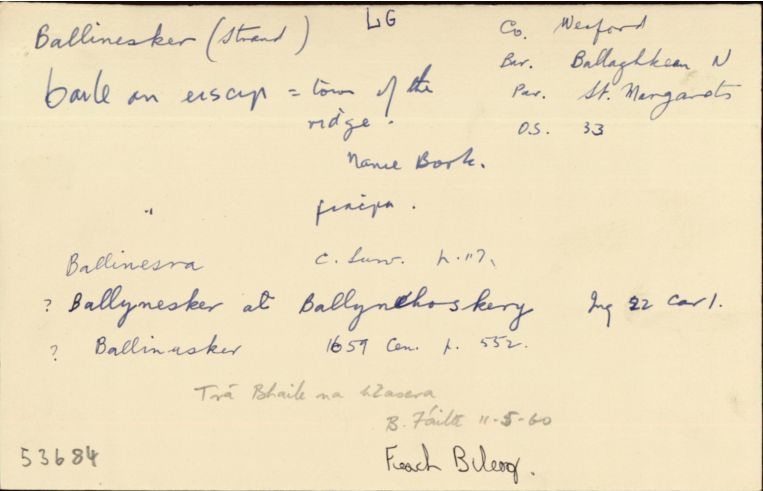 Ballinesker (Strand) LG Co. Wexford
Bar. Ballaghkeen N
baile an eiscir = town of the Par. St. Margarets
ridge. O.S. 33
Name Book.
"
Ballinesra C. Surv. p. 117.
? Ballynesker at Ballynchoskery Inq 22 Car 1.
? Ballinusker 1659 Cen. p. 552.
Trá Bhaile na hEascra
B. Fáilte 11-5-60
53684 Féach B.